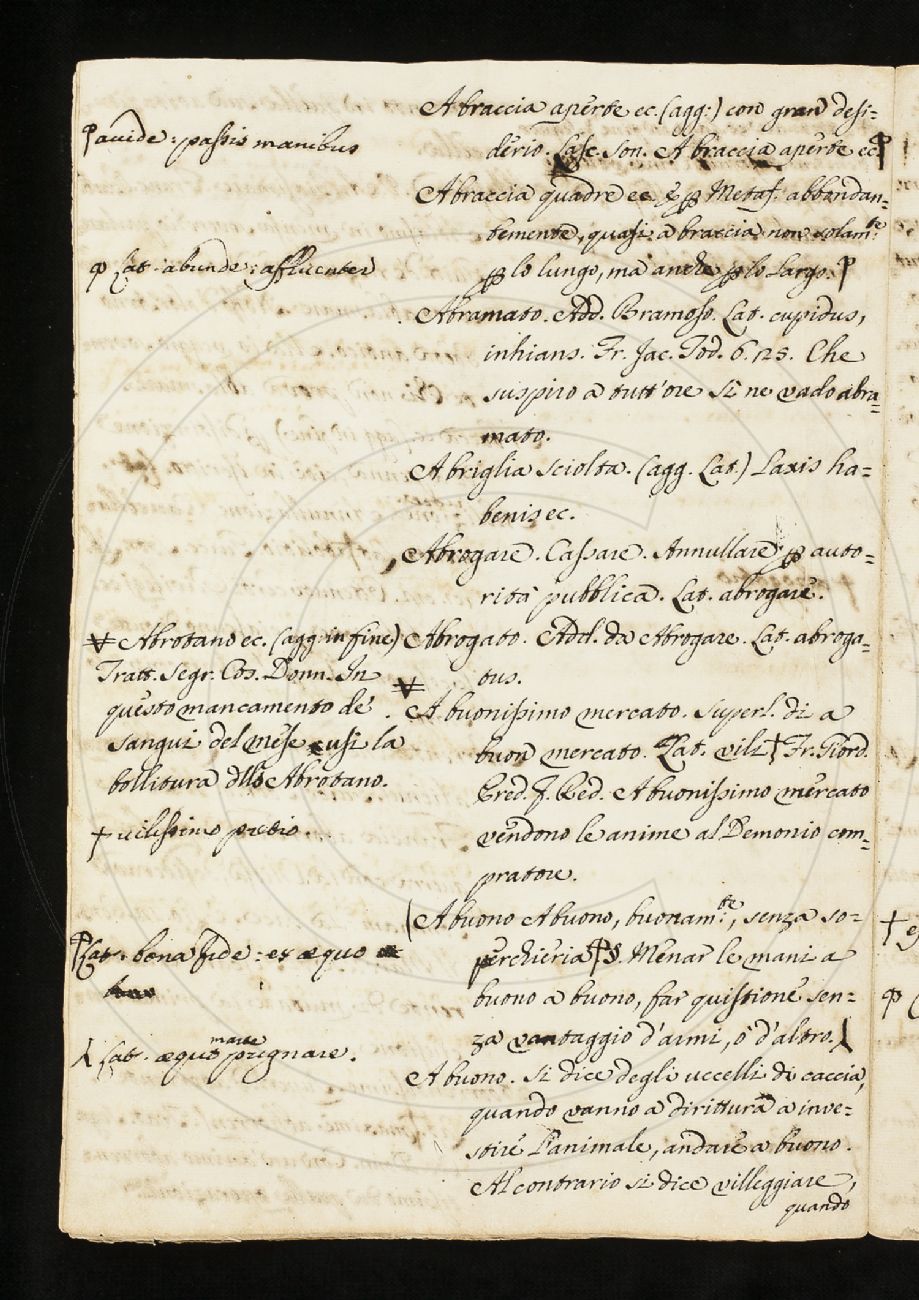 A braccia aperte ec. (agg:) con gran desi-
derio. Lasc. Son. A braccia aperte ec.
A braccia quadre ec. e p Metaf. abbondan=
temente, quasi a braccia non solam.te
p lo lungo, ma anche p lo largo.
Abramato. Add. Bramoso. Lat. cupidus,
inhians. Fr. Jac. Tod. 6. 125. Che
suspiro a tutt'ore sì ne vado abra=
mato.
A briglia sciolta. (agg. Lat.) Laxis ha=
benis ec.
Abrogare. Cassare. Annullare p auto=
rità pubblica. Lat. abrogare.
Abrogato. Add. da Abrogare. Lat. abroga=
tus.
A buonissimo mercato. Superl. di a
buon mercato. Lat. vili † Fr. Giord.
Pred. J. Red. A buonissimo mercato
vendono le anime al Demonio com=
pratore.
A buono A buono, buonam.te, senza so-
perchieria §. Menar le mani a
buono a buono, far quistione sen-
za vantaggio d'armi, o d'altro.
A buono. Si dice degli uccelli di caccia,
quando vanno a dirittura a inve-
stire l'animale, andare a buono.
Al contrario si dice villeggiare,
quando
avide: passis manibus
Lat. abunde: affluenter
Abrotano ec. (agg: in fine)
Tratt. Segr. Cos. Donn. In
questo mancamento de'
sangui del mese usi la
bollitura dllo Abrotano.
† vilissimo pretio.
Lat. bona fide: ex æquo
Lat. æquo marte pugnare.